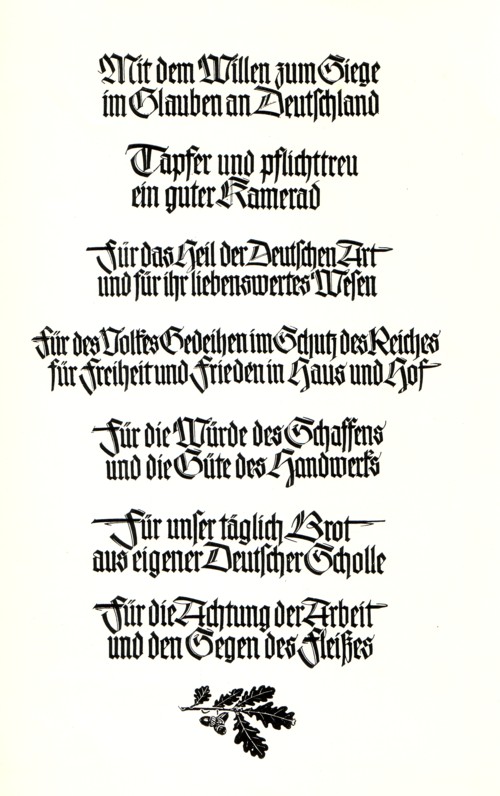 Mit dem Willen zum Siege
im Glauben an Deutschland
Tapfer und pflichttreu
ein guter Kamerad
Für das Heil der Deutschen Art
und für ihr liebenswertes Wesen
Für des Volkes Gedeihen im Schutz des Reiches
für Freiheit und Frieden in Haus und Hof
Für die Würde des Schaffens
und die Güte des Handwerks
Für unser täglich Brot
aus eigener Deutscher Scholle
Für die Achtung der Arbeit
und den Segen des Fleißes